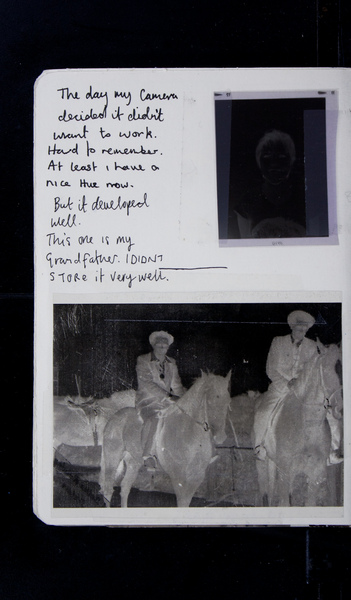 The day my Camera
decided it didn't
want to work.
Hard to remember.
At least i have a
nice Hue now.
But it developed
well.
This one is my
Grandfather. I DIDNT
STORE it very well.